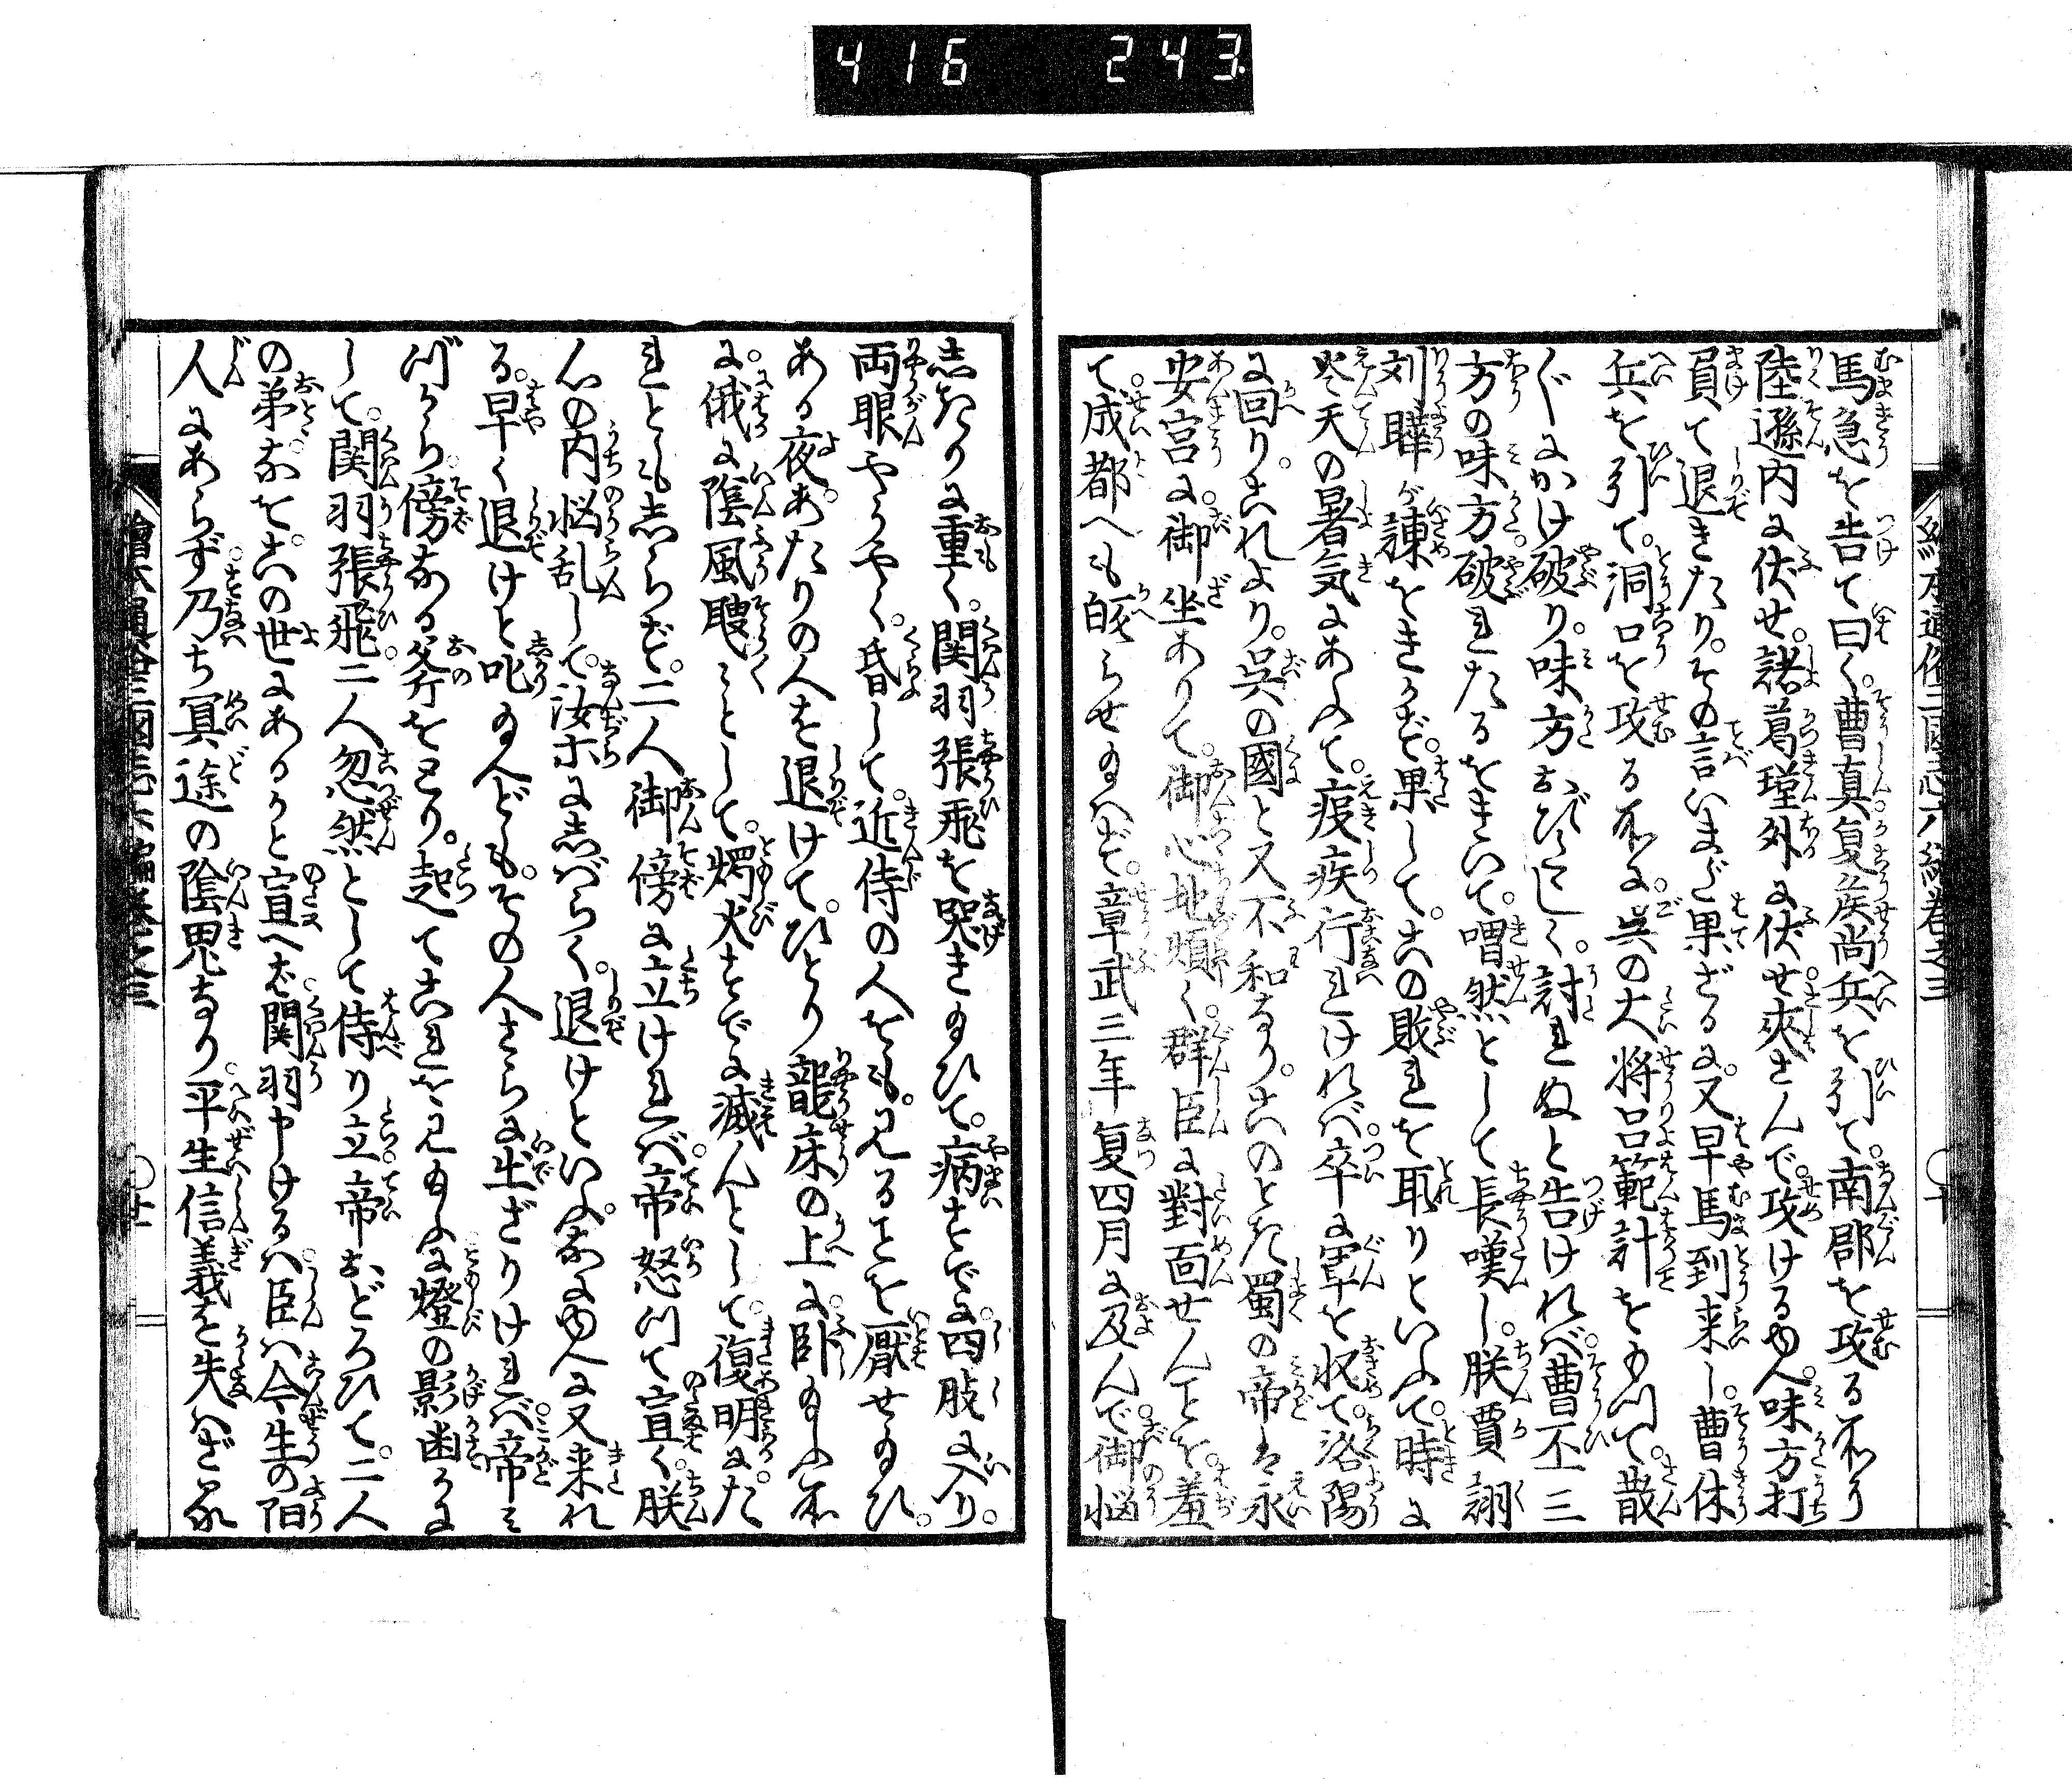 416 243
馬急を告て曰く。曹真夏侯尚兵を引て。南郡を攻る所に
陸遜内に伏せ。諸葛瑾外に伏せ夾さんで。攻けるゆへ。味方打
負て退きたり。その言いまだ果ざるに。又早馬到来し。曹休
兵を引て。洞口を攻る所に。呉の大将呂範計をもつて。散
〴〵にかけ破り。味方おびたゞしく。討れぬと告けれバ。曹丕三
方の味方。破れたるをきいて。喟然として長嘆し。朕賈詡
刘曄が諫をきかず。果して。この敗れを取りといふて。時に
炎天の暑気にあふて。疫疾行れけれバ。卒に軍を収て。洛陽
に回り。これより。呉の國と又不和なり。このとき蜀の帝は永
安宮に。御坐ありて。御心地煩く。群臣に對面せんことを。羞
て。成都へも皈らせ給ハず。章武三年夏四月に及んで。御悩
しきりに重く。関羽張飛を哭き給ひて。病すでに。四肢に入り。
両眼やうやく。昏して。近侍の人をも。見ることを厭せ給ひ。
ある夜。あたりの人を退けて。ひとり龍床の上に。臥給ふ所
に。俄に陰風颼〻として。燭火すでに滅んとして。復明に。た
れとも志らず。二人御傍に立けれバ。帝怒つて宣く。朕
心の内悩乱して。汝ホに志バらく。退けといふ。なにゆへに又来れ
る。早く退けと叱給へども。その人さらに出ざりけれバ。帝み
づから。傍なる斧をとり。起てこれを見給ふに。燈の影幽かに
して。関羽張飛。二人忽然として侍り立。帝おどろひて。二人
の弟。なを。この世にあるかと宣へバ。関羽申けるハ。臣ハ今生の陌
人にあらず。乃ち冥途の陰鬼なり。平生信義を失ハざれ